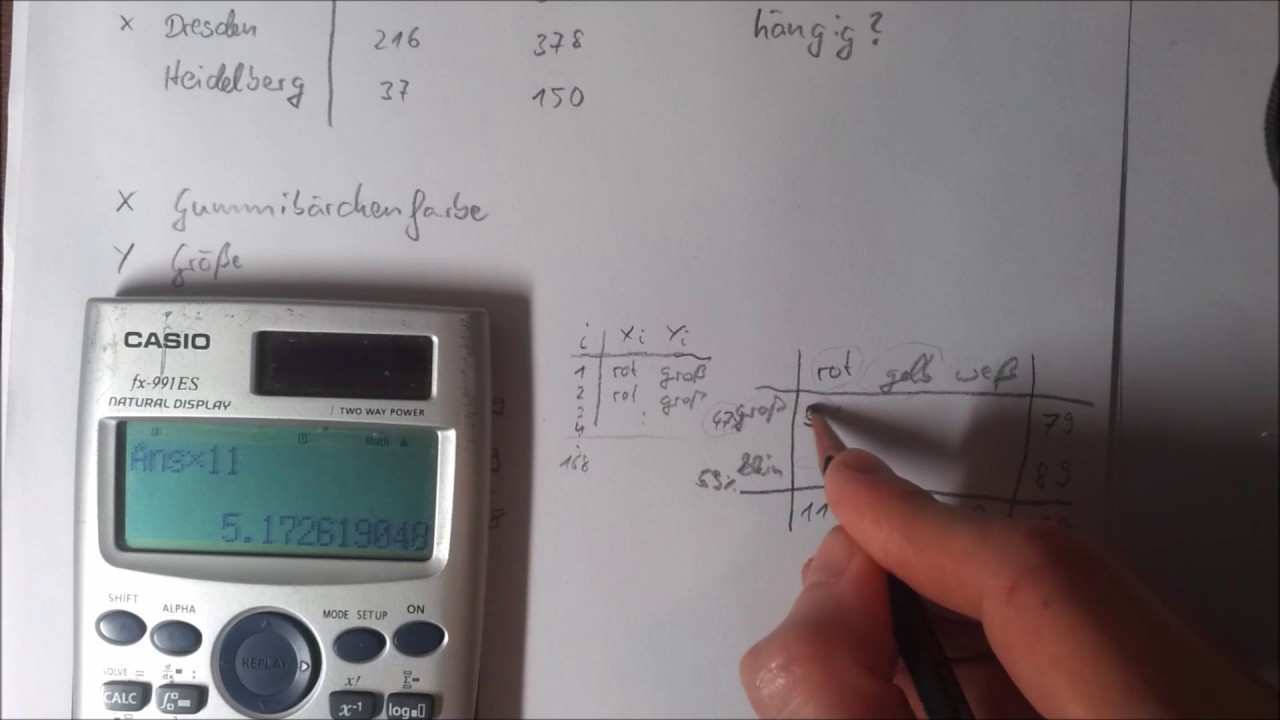 x Dresden 216 378 hängig?
Heidelberg 37 150
X Gummibärchenfarbe
Y Größe
CASIO
fx-991ES
NATURAL DISPLAY
TWO WAY POWER
Math
Ans×11
5.172619048
SHIFT ALPHA MODE SETUP ON
REPLAY
SOLVE =
CALC
x!
x-1 log
i Xi Yi
1 rot groß
2 rot groß
3
4
168
rot gelb weiß
47% groß 5 79
53% klein 89
11